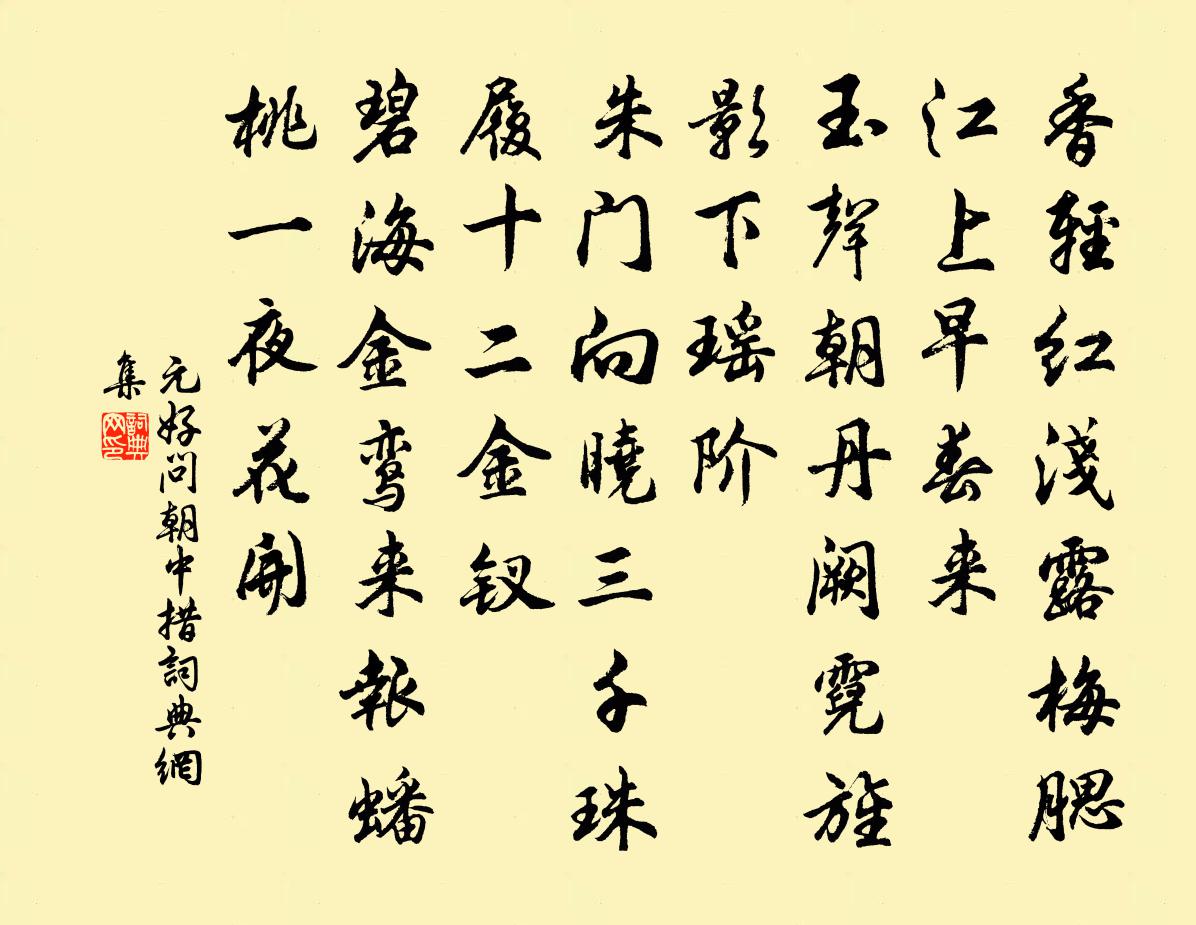 香輕红淺露梅腮
江上早春来
玉聲朝丹阙霓旌
影下瑶阶
朱门向曉三千珠
履十二金钗
碧海金鸾来報蟠
桃一夜花開
元好问朝中措詞典網
集
詞典
网印